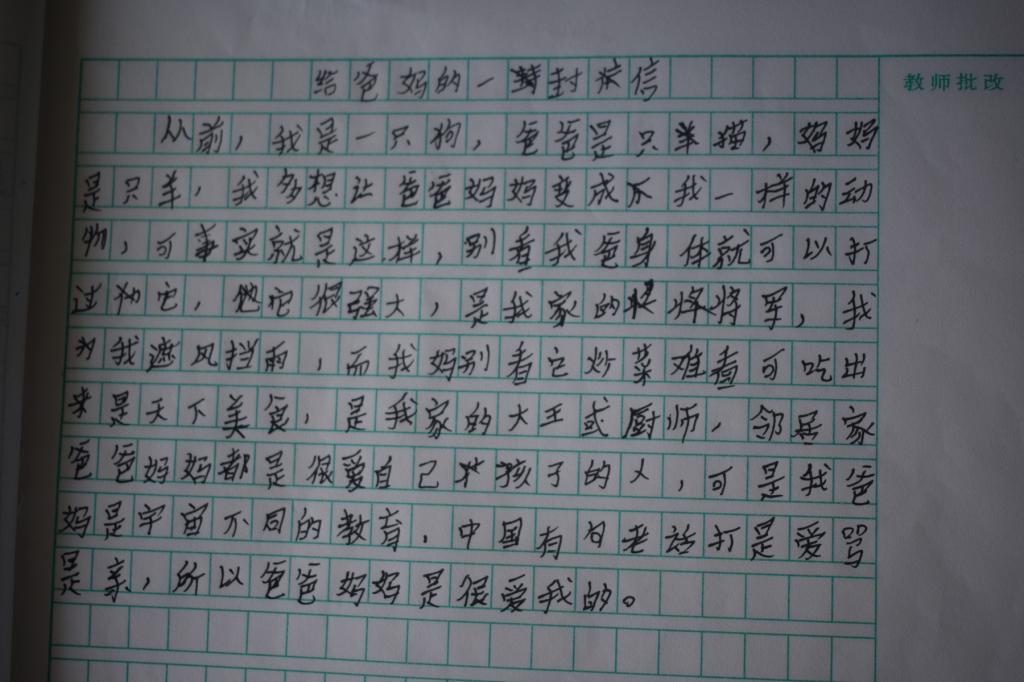 给爸妈的一封信
教师批改
从前，我是一只狗，爸爸是只猫，妈妈
是只羊，我多想让爸爸妈妈变成不我一样的动
物，可事实就是这样，别看我爸身体就可以打
过它，它很强大，是我家的将军，我
为我遮风挡雨，而我妈别看它炒菜难看可吃出
来是天下美食，是我家的大王或厨师，邻居家
爸爸妈妈都是很爱自己孩子的人，可是我爸
妈是宇宙不同的教育．中国有句老话打是爱骂
是亲，所以爸爸妈妈是很爱我的。